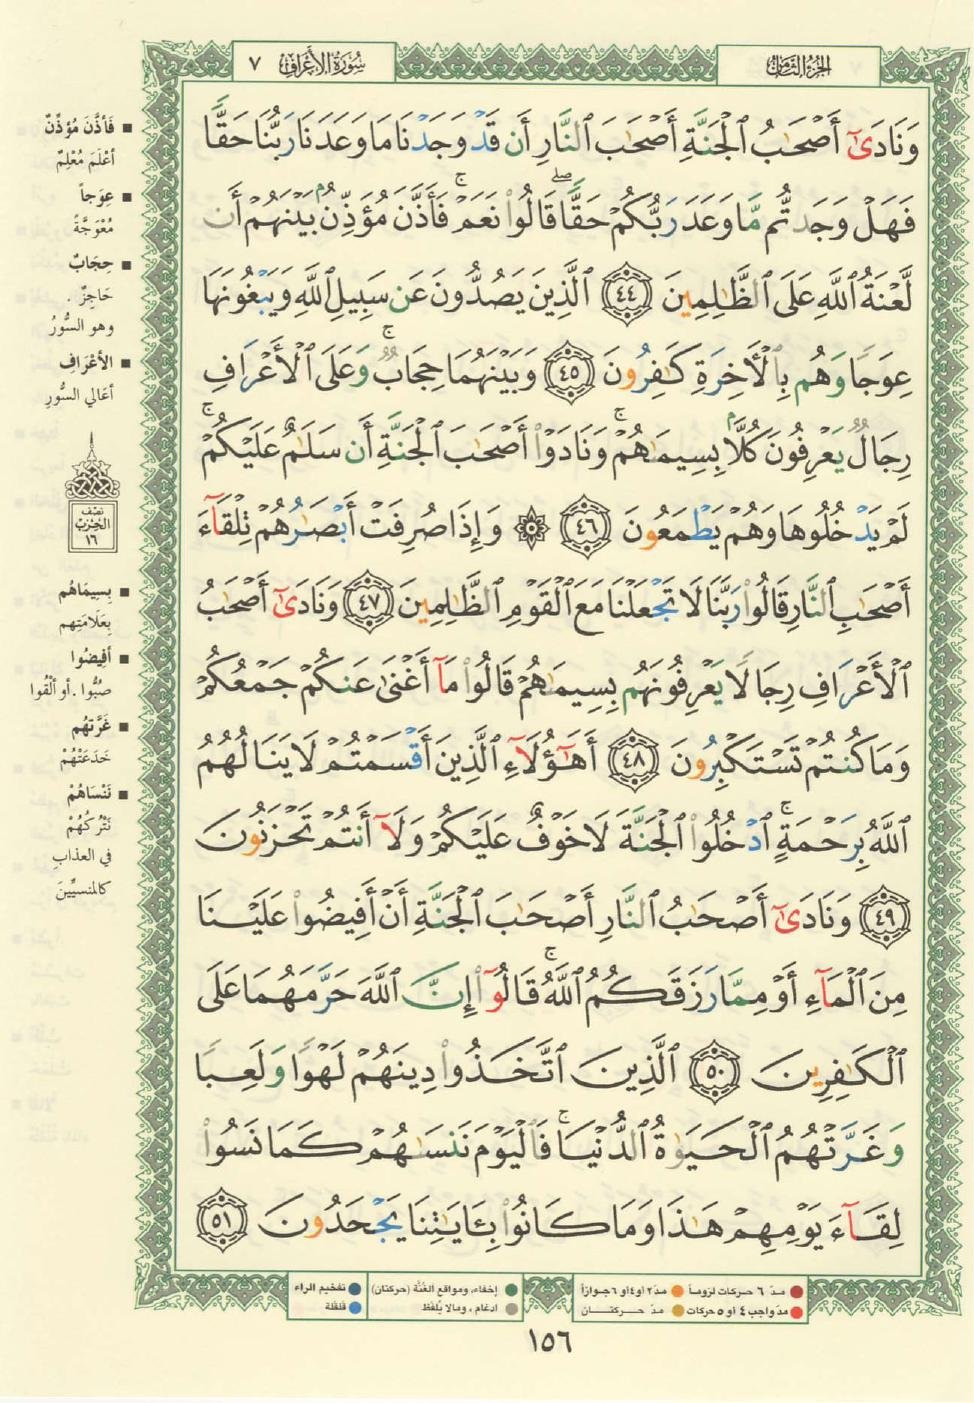 الجزء الثامن
سورة الأعراف ٧
وَنَادَىٰٓ أَصْحَٰبُ ٱلْجَنَّةِ أَصْحَٰبَ ٱلنَّارِ أَن قَدْ وَجَدْنَا مَا وَعَدَنَا رَبُّنَا حَقًّا
فَهَلْ وَجَدتُّم مَّا وَعَدَ رَبُّكُمْ حَقًّاۖ قَالُوا۟ نَعَمْۚ فَأَذَّنَ مُؤَذِّنٌۢ بَيْنَهُمْ أَن
لَّعْنَةُ ٱللَّهِ عَلَى ٱلظَّٰلِمِينَ ٤٤ ٱلَّذِينَ يَصُدُّونَ عَن سَبِيلِ ٱللَّهِ وَيَبْغُونَهَا
عِوَجًا وَهُم بِٱلْأَخِرَةِ كَٰفِرُونَ ٤٥ وَبَيْنَهُمَا حِجَابٌۚ وَعَلَى ٱلْأَعْرَافِ
رِجَالٌ يَعْرِفُونَ كُلًّۢا بِسِيمَىٰهُمْۚ وَنَادَوْا۟ أَصْحَٰبَ ٱلْجَنَّةِ أَن سَلَٰمٌ عَلَيْكُمْۚ
لَمْ يَدْخُلُوهَا وَهُمْ يَطْمَعُونَ ٤٦ ۞ وَإِذَا صُرِفَتْ أَبْصَٰرُهُمْ تِلْقَآءَ
أَصْحَٰبِ ٱلنَّارِ قَالُوا۟ رَبَّنَا لَا تَجْعَلْنَا مَعَ ٱلْقَوْمِ ٱلظَّٰلِمِينَ ٤٧ وَنَادَىٰٓ أَصْحَٰبُ
ٱلْأَعْرَافِ رِجَالًا يَعْرِفُونَهُم بِسِيمَىٰهُمْ قَالُوا۟ مَآ أَغْنَىٰ عَنكُمْ جَمْعُكُمْ
وَمَا كُنتُمْ تَسْتَكْبِرُونَ ٤٨ أَهَٰٓؤُلَآءِ ٱلَّذِينَ أَقْسَمْتُمْ لَا يَنَالُهُمُ
ٱللَّهُ بِرَحْمَةٍۚ ٱدْخُلُوا۟ ٱلْجَنَّةَ لَا خَوْفٌ عَلَيْكُمْ وَلَآ أَنتُمْ تَحْزَنُونَ
٤٩ وَنَادَىٰٓ أَصْحَٰبُ ٱلنَّارِ أَصْحَٰبَ ٱلْجَنَّةِ أَنْ أَفِيضُوا۟ عَلَيْنَا
مِنَ ٱلْمَآءِ أَوْ مِمَّا رَزَقَكُمُ ٱللَّهُۚ قَالُوٓا۟ إِنَّ ٱللَّهَ حَرَّمَهُمَا عَلَى
ٱلْكَٰفِرِينَ ٥٠ ٱلَّذِينَ ٱتَّخَذُوا۟ دِينَهُمْ لَهْوًا وَلَعِبًا
وَغَرَّتْهُمُ ٱلْحَيَوٰةُ ٱلدُّنْيَاۚ فَٱلْيَوْمَ نَنسَىٰهُمْ كَمَا نَسُوا۟
لِقَآءَ يَوْمِهِمْ هَٰذَا وَمَا كَانُوا۟ بِـَٔايَٰتِنَا يَجْحَدُونَ ٥١
■ فَأذَّنَ مُؤذِّنٌ
أعْلَمَ مُعْلِمٌ
■ عِوَجاً
مُعْوَجَّةً
■ حِجَابٌ
حَاجِزٌ .
وهو السُّورُ
■ الأعْرَافِ
أعَالي السُّورِ
نصف
الحزب
١٦
■ بِسِيمَاهُم
بِعَلَامَتِهِم
■ أفِيضُوا
صُبُّوا . أو ألْقُوا
■ غَرَّتهُم
خَدَعَتْهُمْ
■ نَنْسَاهُمْ
نَتْرُكُهُمْ
في العذابِ
كالمنسيِّينَ
مدّ ٦ حركات لزوماً ● مدّ ٢ أو ٤ أو ٦ جوازاً
مدّ واجب ٤ أو ٥ حركات ● مدّ حركتـــان
إخفاء، ومواقع الغُنَّة (حركتان) ● تفخيم الراء
ادغام ، ومالا يُلفَظ ● قلقلة
١٥٦